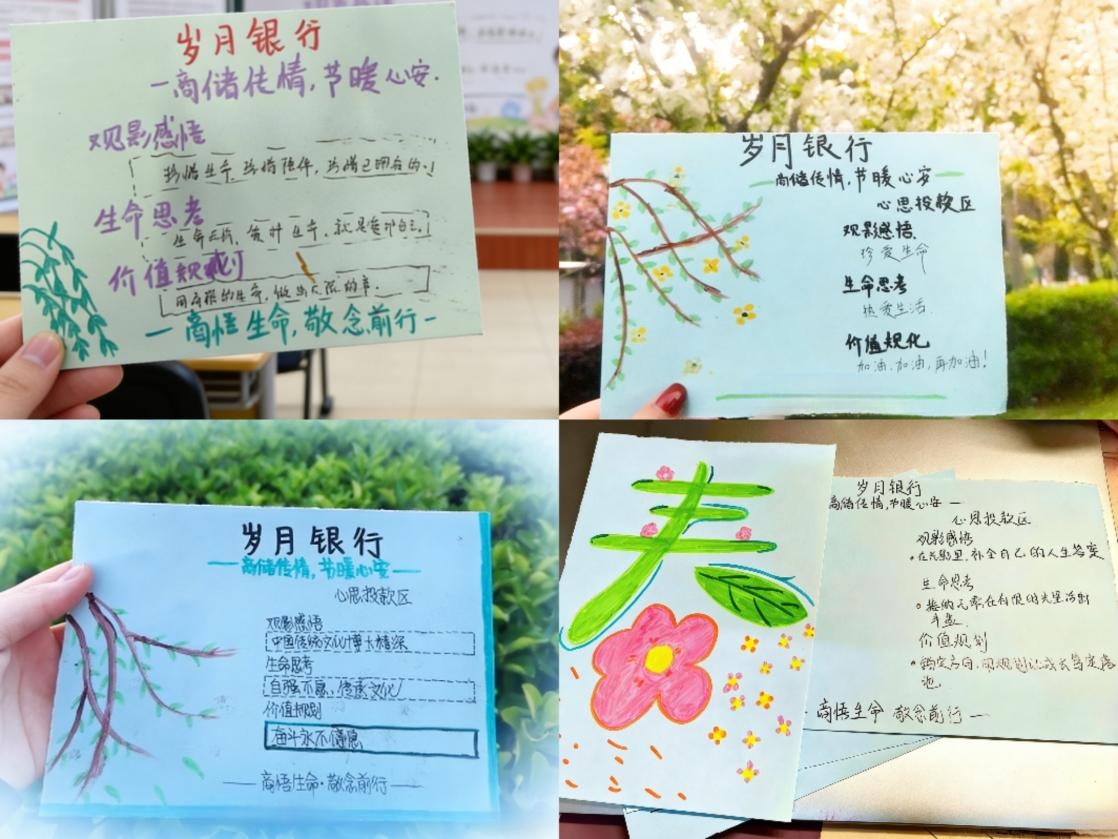 岁月银行
—商储传情,节暖心安.
观影感悟
珍惜生命,珍惜陪伴,珍惜已拥有的.!
生命思考
价值规划
用有限的生命,做出无限的事.
—商悟生命,敬念前行-
岁月银行
商储传情,节暖心安
心思投款区
观影感悟
珍爱生命
生命思考
热爱生活.
价值规化
加油,加油,再加油!
岁月银行
—商储传情,节暖心安—
心思投款区
观影感悟
中国传统文化博大精深
生命思考
自强不息、传承文化
价值规划
奋斗永不停息
——商悟生命·敬念前行——
春
岁月银行
商储传情,节暖心安—
心思投款区
观影感悟
•在光影里,补全自己的人生答案
生命思考
•接纳无常在有限时光里活出
丰盈.
价值规划
•锚定方向,用规划让成长笃定落
地.
-商悟生命 敬念前行—